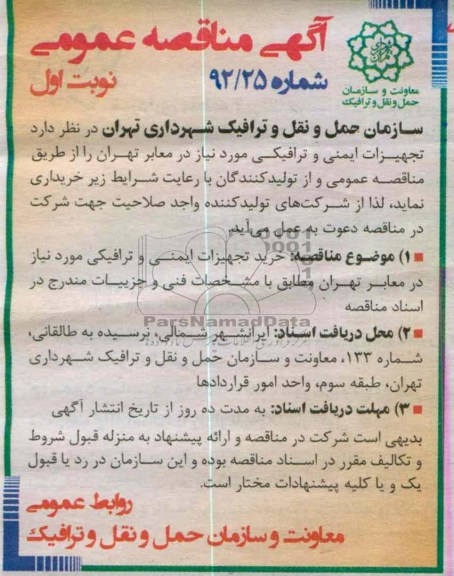 آگهی مناقصه عمومی
شماره ۹۲/۲۵
نوبت اول
معاونت و سازمان
حمل و نقل و ترافیک
سازمان حمل و نقل و ترافیک شهرداری تهران در نظر دارد
تجهیزات ایمنی و ترافیکی مورد نیاز در معابر تهران را از طریق
مناقصه عمومی و از تولیدکنندگان با رعایت شرایط زیر خریداری
نماید، لذا از شرکت‌های تولیدکننده واجد صلاحیت جهت شرکت
در مناقصه دعوت به عمل می‌آید.
۱) موضوع مناقصه: خرید تجهیزات ایمنی و ترافیکی مورد نیاز
در معابر تهران مطابق با مشخصات فنی و جزییات مندرج در
اسناد مناقصه
ParsNamadData
۲) محل دریافت اسناد: ایرانشهر شمالی، نرسیده به طالقانی،
شماره ۱۳۳، معاونت و سازمان حمل و نقل و ترافیک شهرداری
تهران، طبقه سوم، واحد امور قراردادها
۳) مهلت دریافت اسناد: به مدت ده روز از تاریخ انتشار آگهی
بدیهی است شرکت در مناقصه و ارائه پیشنهاد به منزله قبول شروط
و تکالیف مقرر در اسناد مناقصه بوده و این سازمان در رد یا قبول
یک و یا کلیه پیشنهادات مختار است.
روابط عمومی
معاونت و سازمان حمل و نقل و ترافیک